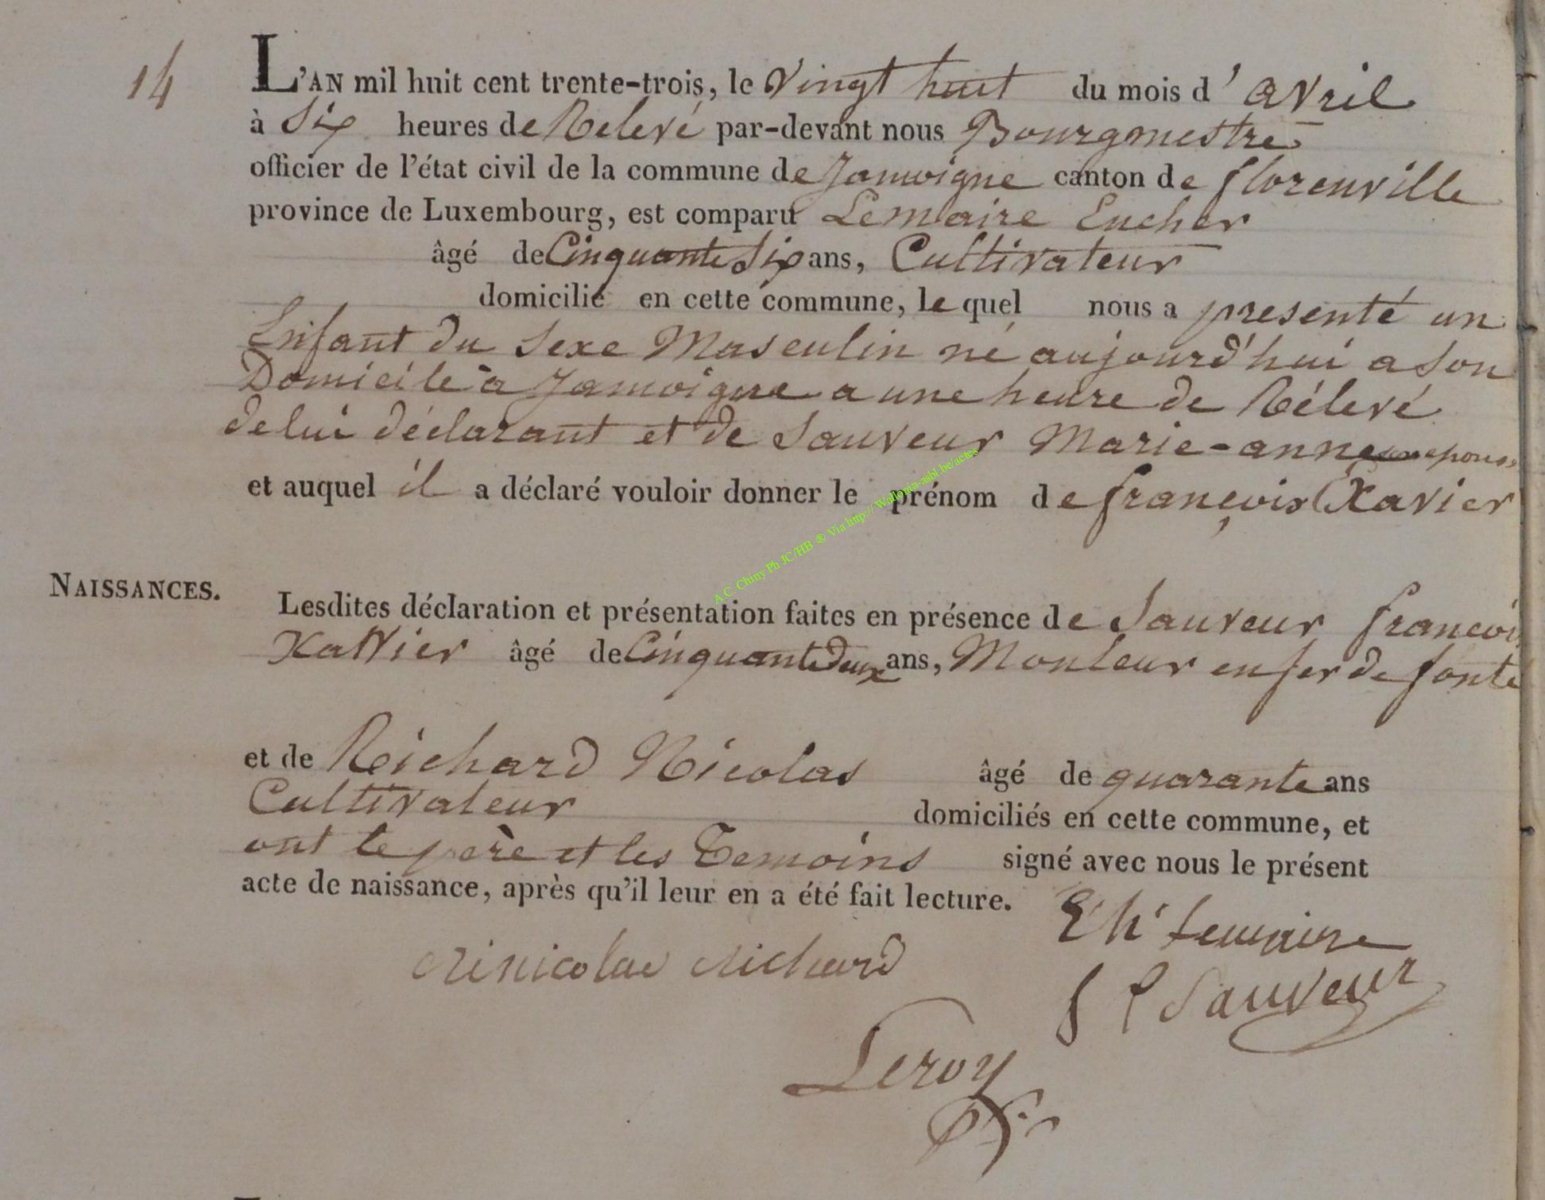 14
L'AN mil huit cent trente-trois, le Vingt huit du mois d' avril
à Six heures de Relevé par-devant nous Bourgmestre
officier de l'état civil de la commune de Jamoigne canton de florenville
province de Luxembourg, est comparu Lemaire Eucher
âgé de Cinquante Six ans, Cultivateur
domicilié en cette commune, le quel nous a presenté un
Enfant du Sexe Masculin né aujourd'hui a Son
Domicile a Jamoigne a une heure de Rélevé
de lui déclarant et de Sauveur Marie-anne son epouse
et auquel il a déclaré vouloir donner le prénom de françois Xavier
A.C. Chiny Ph JC/HB ® Via http://Wallonia-asbl.be/actes
NAISSANCES.
Lesdites déclaration et présentation faites en présence de Sauveur françois
Xavier âgé de Cinquante Deux ans, Mouleur en fer de fonte
et de Richard Nicolas âgé de quarante ans
Cultivateur domiciliés en cette commune, et
ont le père et les Temoins signé avec nous le présent
acte de naissance, après qu'il leur en a été fait lecture.
Eh' Lemaire
nicolas Richard
f Sauveur
Leroy